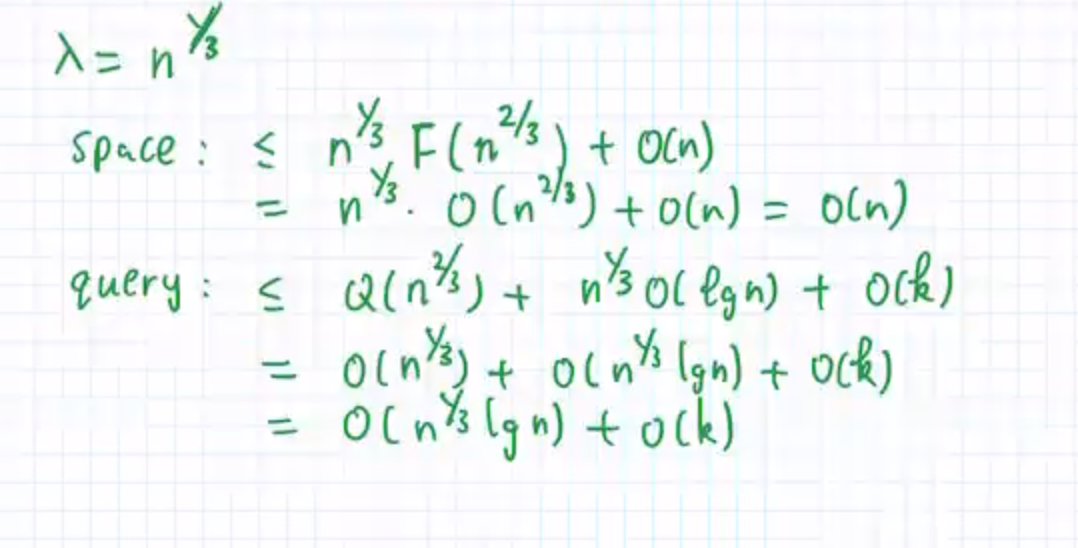 λ = n^{1/3}
space : ≤ n^{1/3} F(n^{2/3}) + O(n)
= n^{1/3} · O(n^{2/3}) + O(n) = O(n)
query : ≤ Q(n^{2/3}) + n^{1/3} O(lgn) + O(k)
= O(n^{1/3}) + O(n^{1/3} lgn) + O(k)
= O(n^{1/3} lgn) + O(k)